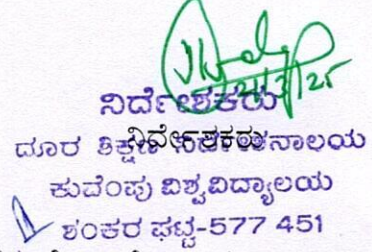 ನಿರ್ದೇಶಕರು
ನಿರ್ದೇಶಕರು
ದೂರ ಶಿಕ್ಷಣ ನಿರ್ದೇಶನಾಲಯ
ಕುವೆಂಪು ವಿಶ್ವವಿದ್ಯಾಲಯ
ಶಂಕರ ಘಟ್ಟ-577 451